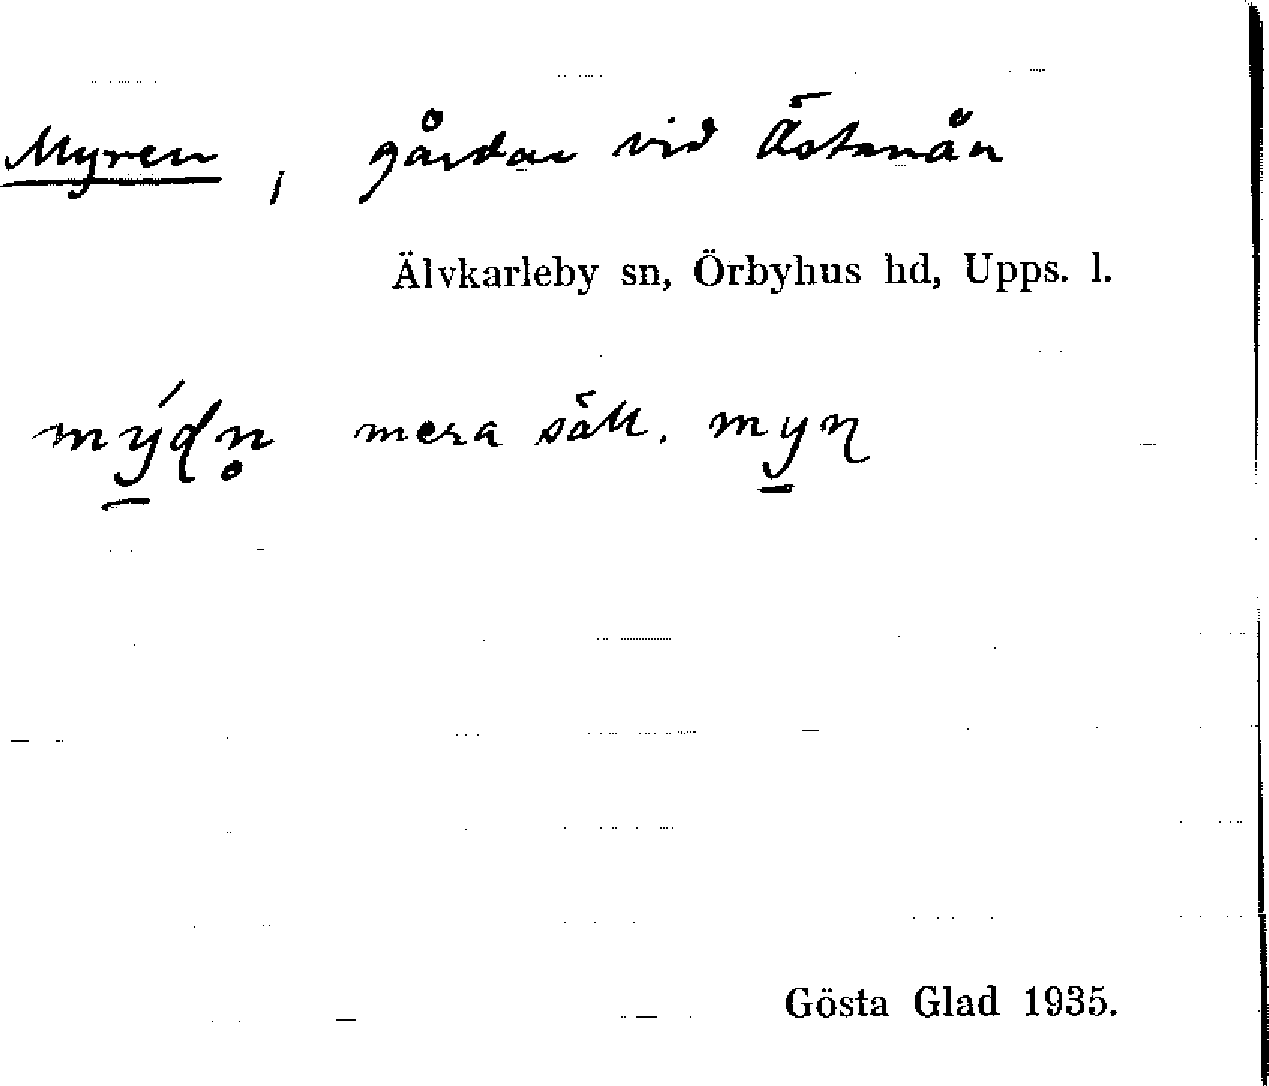 Myren, gårdar vid Östanån
Älvkarleby sn, Örbyhus hd, Upps. l.
mera säll.
Gösta Glad 1935.